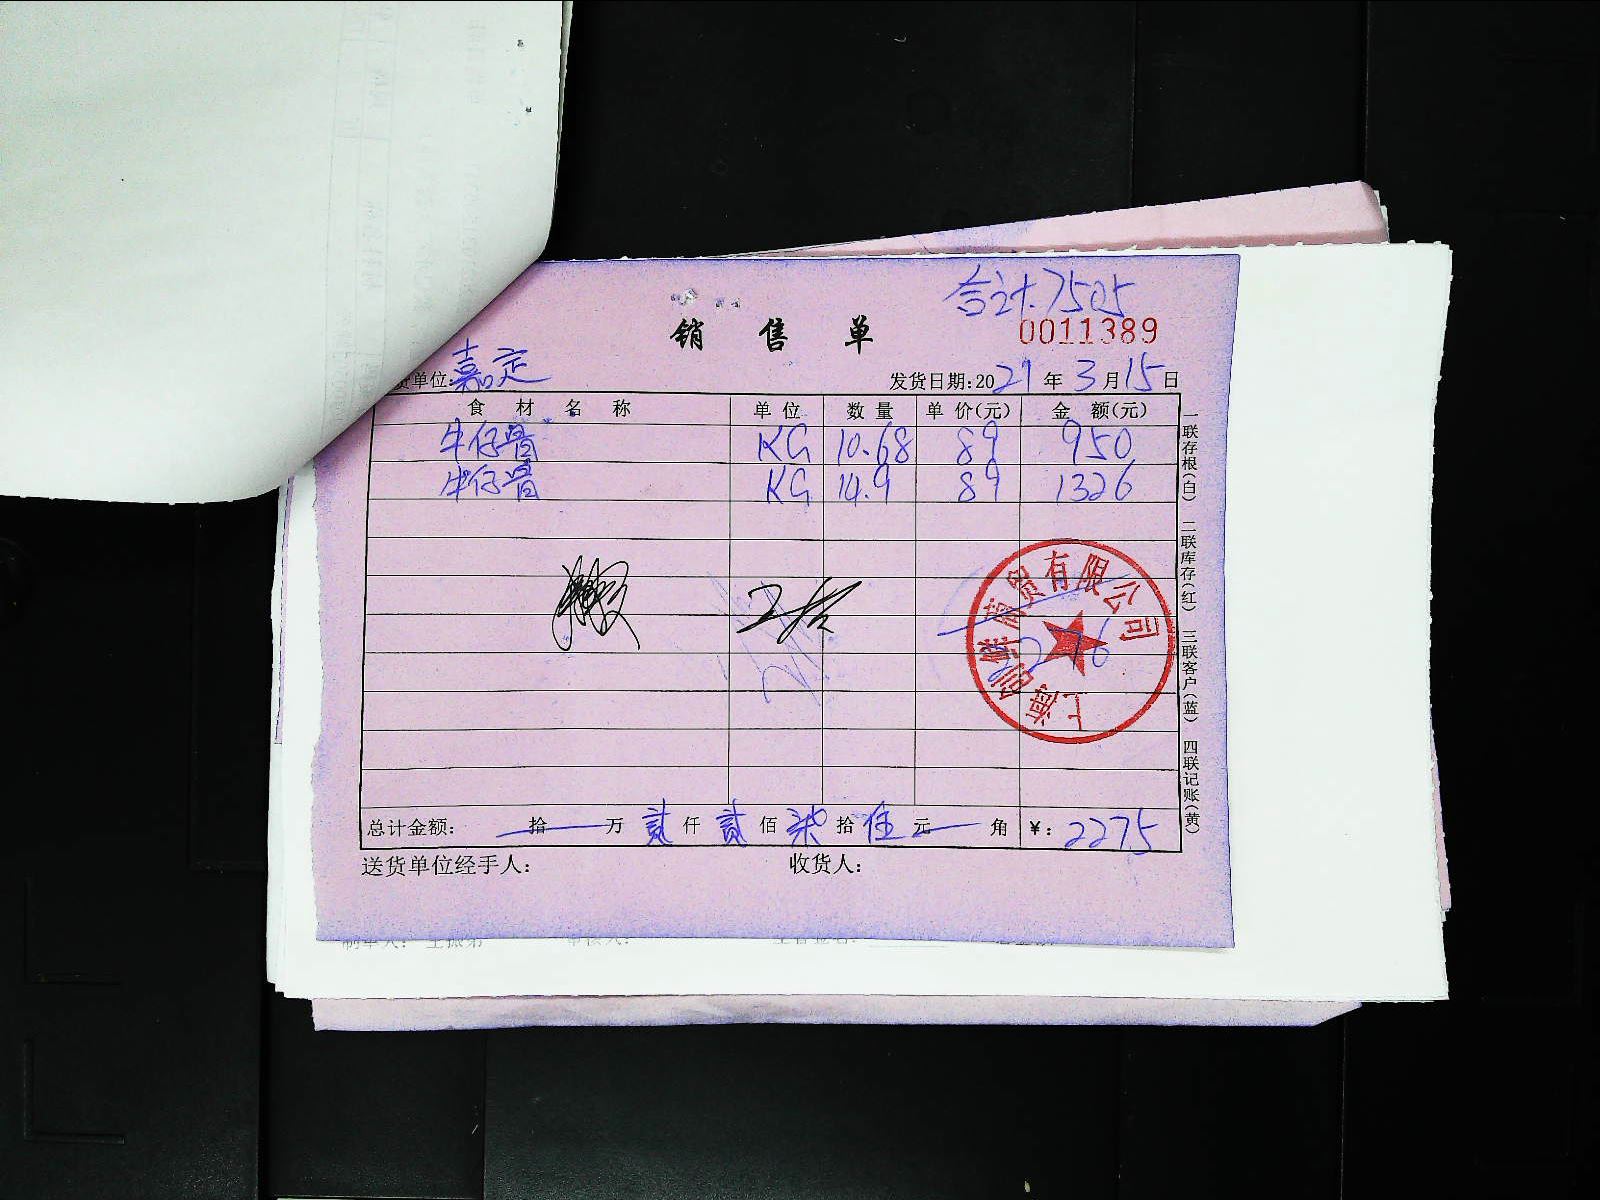 合计.7505
销售单
0011389
货单位:嘉定
发货日期:2021年3月15日
食材名称 单位 数量 单价(元) 金额(元)
牛仔骨 KG 10.68 89 950
牛仔骨 KG 14.9 89 1326
2276
商贸有限公司
上海
总计金额: 拾 万 贰仟 贰佰 柒拾 伍元 角 ¥: 2275
送货单位经手人: 收货人:
一联存根(白) 二联库存(红) 三联客户(蓝) 四联记账(黄)